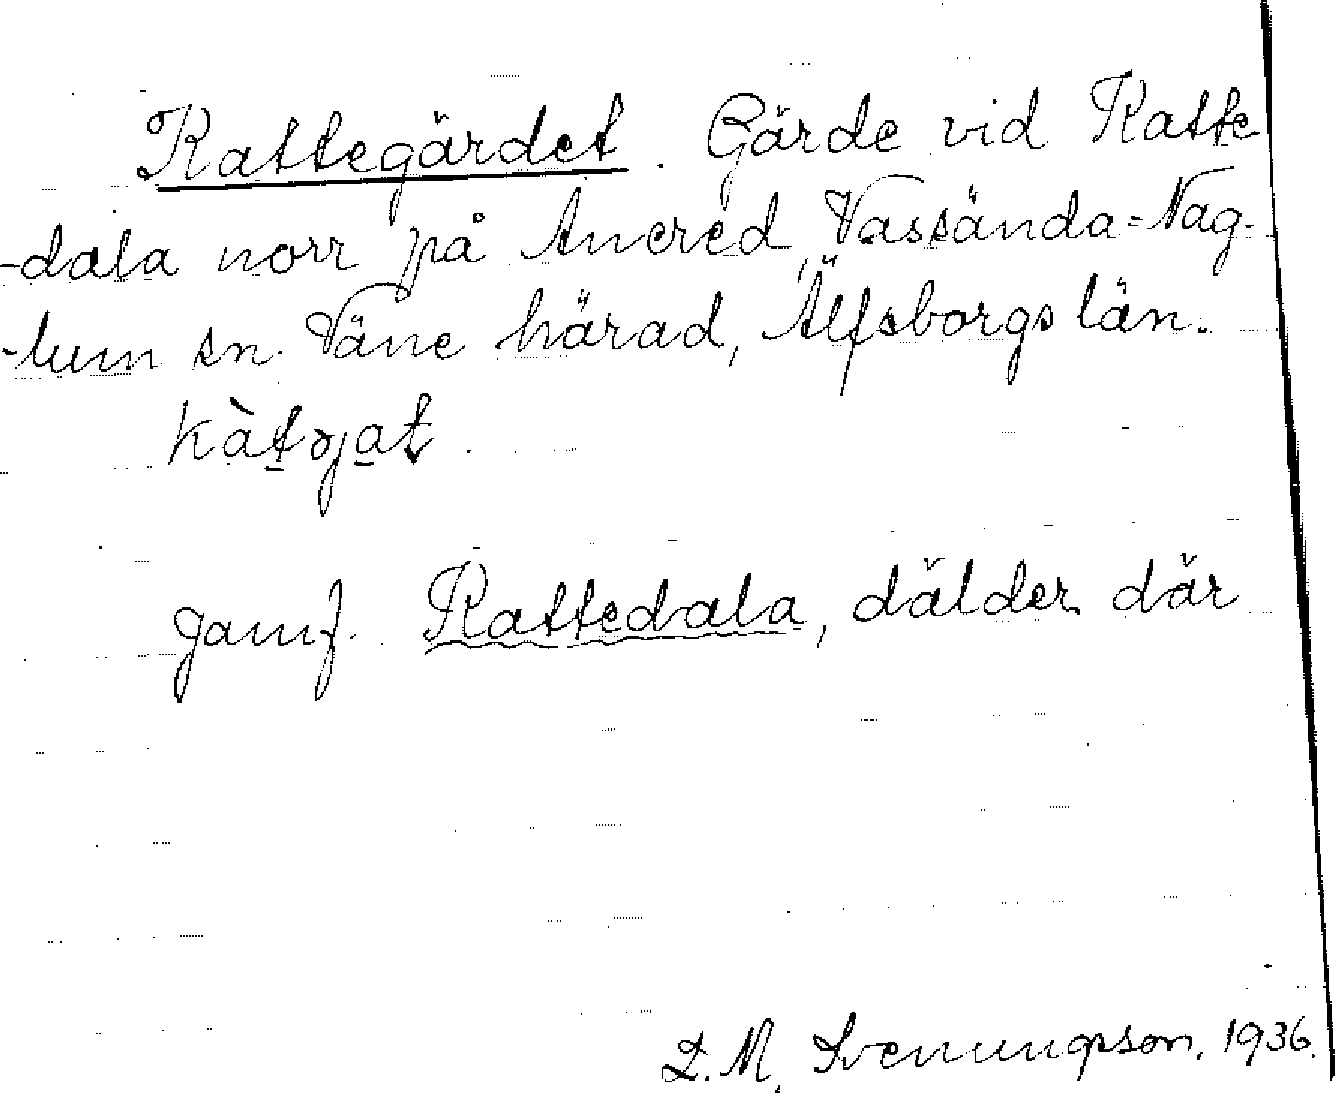 Kattegärdet. Gärde vid Katte
-dala norr på Anered, Vassända=Nag-
-lum sn. Väne härad, Älfsborgs län.
kàtəjat.
jamf. Kattedala, dälder där
L. M. Svenungsson. 1936.